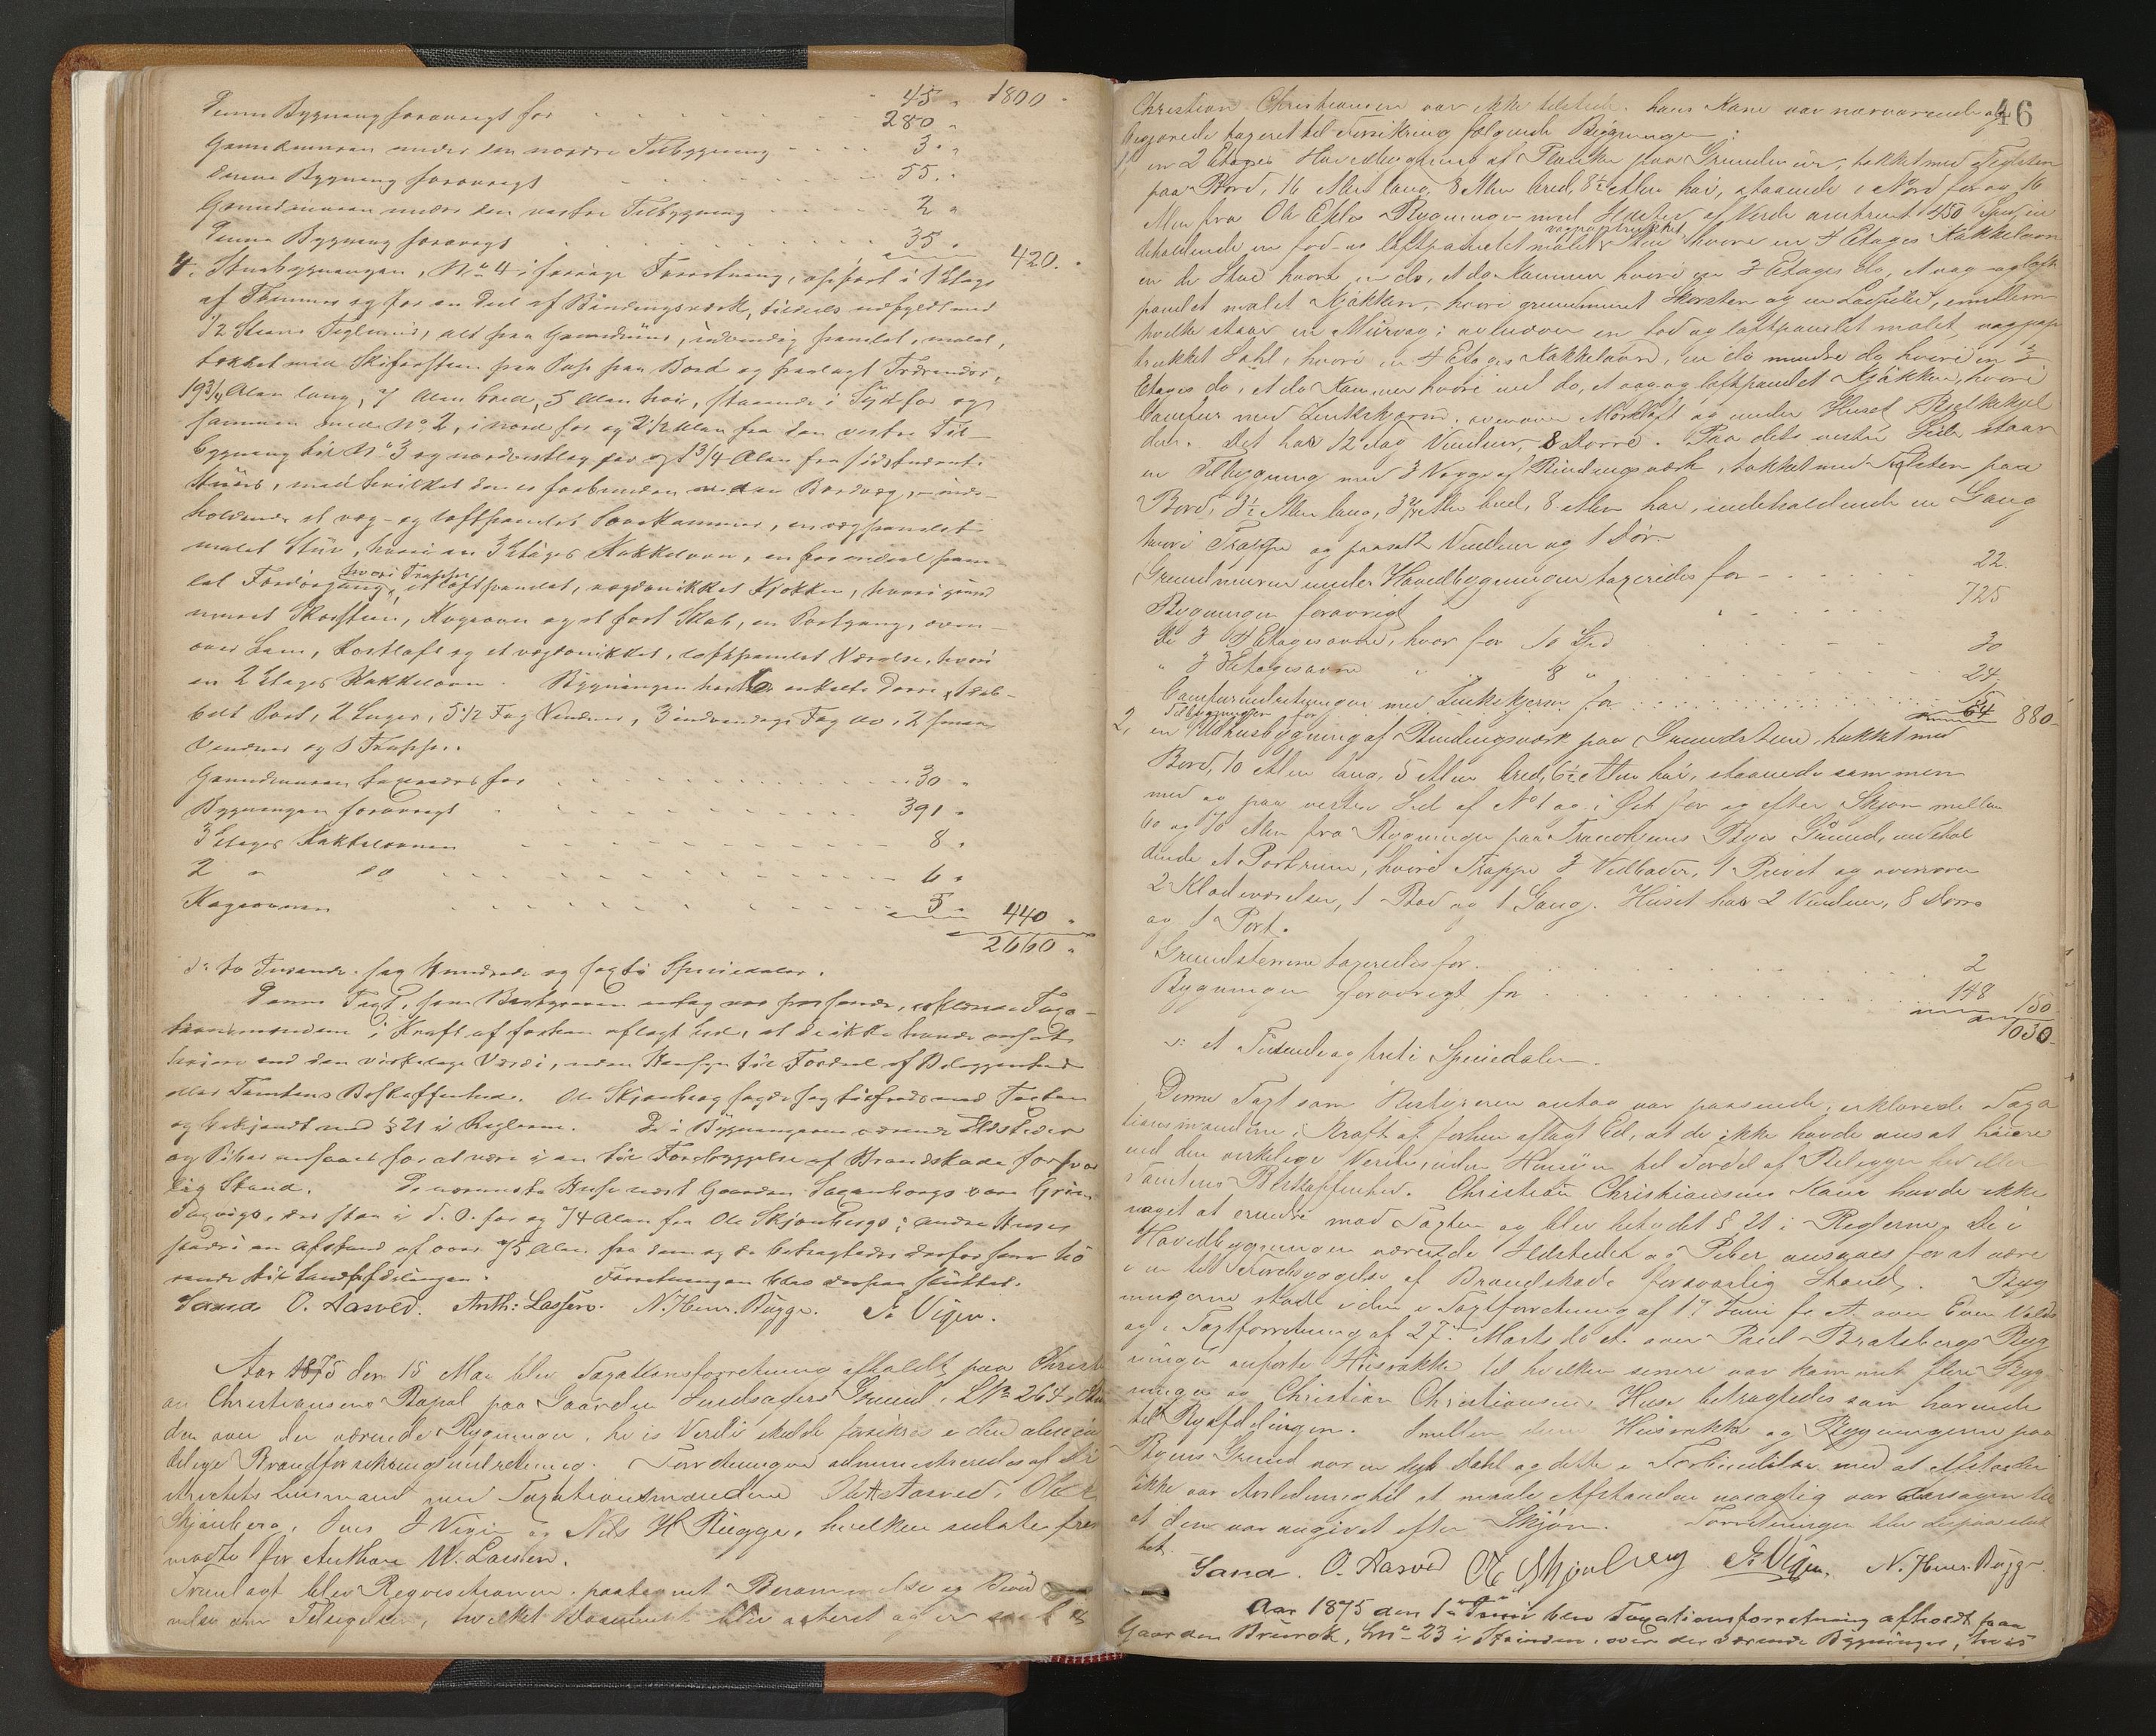 45 " 1800 "
Denne Bygning forøvrigt for 280 "
Grundmuren under den nordre Tilbygning 3 "
denne Bygning forøvrigt 55 "
Grundmuren under den vestre Tilbygning 2 "
Denne Bygning forøvrigt 35 " 420 "
4. Stuebygningen, No 4 i forrige Forretning, opført i 1 Etage
af Tømmer og for en Deel af Bindingsværk, tildels udfyldt med
1/2 Steens Teglmuur, alt paa Grundmuur, indvendig panelet, malet,
tækket med Skifersteen paa Bord og
19 3/4 Alen lang, 7 Alen bred, 5 Alen høi, staaende i Syd for og
sammen med No 2, i nord for og 2 1/2 Alen fra den vestre Til
bygning til No 3 og nordvestlig for og 1 3/4 Alen fra sidstnævnte
med hvilket den er forbunden ved en Bordvæg, inde-
holdende et væg- og loftpanelet Sovekammer, en vægpanelet
malet Stue, hvori en 3 Etages Kakkelovn, en for endeel pane-
let Fordørgang, hvori Trappe, et loftpanelet, Kjøkken, hvori grund
muret Skorsteen, Kogeovn og et fast Skab, en Portgang, oven-
over Lem, Kostloft og et loftpanelet Værelse, hvori
en 2 Etages Kakkelovn. Bygningen har enkelte Dørre, 1 dob-
belt Port, 2 Luger, 5 1/2 Fag Vinduer, 3 indvendige Fag do, 2 smaa
Vinduer og 1 Trappe.
Grundmuren taxeredes for 30 "
Bygningen forøvrigt 391 "
3 Etages Kakkelovnen 8 "
2 " do 6 "
Kogeovnen 5 " 440 "
2660 "
d: to Tusende sex Hundrede og sexti Speciedaler.
Denne Taxt, som Bestyreren antog var passende, erklærede Taxa-
tionsmændene i Kraft af forhen aflagt Eed, at de ikke havde ansat
høiere end den virkelige Værdi, uden Hensyn til Fordeel af Beliggenhed
eller Tomtens Beskaffenhed. Ole Skjønberg sagde sig tilfreds med Taxten
og bekjendt med § 21 i Reglerne. De i Bygningerne værende Ildsteder
og Piber ansaaes for at være i en til Forebyggelse af Brandskade forsvar
lig Stand. De nærmeste Huse vare
der staa i S.O. for og 74 Alen fra Ole Skjønbergs; andre Huse
i en Afstand af over 75 Alen fra dem og de betragtedes derfor som hø
rende til Landafdelingen. Forretningen blev derpaa sluttet.
Sana O. Aasved. Anth: Lassen. N. Henr. Bügge. J. Vigen.
Aar 1875 den 15 Mai blev Taxationsforretning afholdt paa Christi
an Christiansens Bopæl paa Gaarden Grund, LNo 264
den over der værende Bygninger, hvis Værdi skulde forsikres i den almin
delige Brandforsikringsindretning. Forretningen administreredes af Di
strictets Lensmand med Taxationsmændene Ole Aasved, Ole
Skjønberg, Jens J Vigen og Nils H Bügge, hvilken sidste frem
mødte for Anthon W. Lassen.
Fremlagt blev Requisitionen paategnet Berammelse og Bevid
nelse om Tilsigelse, hvilket Document blev acteret og er
46
Christian Christiansen var ikke tilstede. hans Kone var nærværende og
begjærede taxeret til Forsikring følgende Bygninger:
1, en 2 Etages Hovedbygning af Planker paa Grundmur, tækket med Tegelsten
paa Bord, 16 Alen lang, 8 Alen bred, 8 1/2 Alen høi, staaende i Nord for og 16
Alen fra Ole Bygninger med Huller af Værdi omtrent 450 Spd, in
deholdende en fod- og loftpanelet malet vægpaptrukket Stue hvori en 4 Etages Kakkelovn
en do Stue hvori en do, et do Kammer hvori en 3 Etages do, et væg- og loft
panelet malet Kjøkken, hvori grundmuret Skorsten og en imellem
hvilke staar en Murvæg; ovenover en fod og loftpanelet malet, vægpap
trukket Sahl, hvori en 4 Etages Kakkelovn, en do mindre do hvori en 3
Etages do, et do Kammer hvori en do, et væg og loftpanelet Kjøkken, hvori
Comfur med ovenover Mørkloft og under Huset Kjel
der. Det har 12 Fag Vinduer, 8 Dørre. Paa dets vestre Side staar
en Tilbygning med 3 Vægge af Bindingsværk, tækket med Teglsten paa
Bord, 3 1/2 Alen lang, 3 Alen bred, 8 Alen høi, indeholdende en Gang
hvori Trappe og 2 Vinduer og 1 Dør.
Grundmuren under Hovedbygningen taxeredes for 22
Bygningen forøvrigt 725
de 3 4 Etagesovne, hver for 10 Spd 30
" 3 3 Etagesovne " 8 " 24
Comfurindretningen med for 15
Tilbygningen for 64 880
2, en Udhusbygning af Bindingsværk paa Grundstene, tækket med
Bord, 10 Alen lang, 5 Alen bred, 6 1/2 Alen høi, staaende sammen
med og paa vestre Side af No 1 og i Øst for og efter Skjøn mellem
60 og 70 Alen fra Bygninger paa Byes Grund, indehol
dende et Portrum, hvori Trappe 3 Vedboder, 1 Privet og ovenover
2 Klædeværelser, 1 Bod og 1 Gang. Huset har 2 Vinduer, 8 Dørre
og 1 Port.
Grundstenene taxeredes for 2
Bygningen forøvrigt for 148 150
1030
d: et Tusende og treti Speciedaler.
Denne Taxt som Bestyreren antog var passende, erklærede Taxa
tionsmændene i Kraft af forhen aflagt Ed, at de ikke havde ansat høiere
end den virkelige Værdi, uden Hensyn til Fordel af Beliggenhed eller
Tomtens Beskaffenhed. Christian Christiansens Kone havde ikke
noget at erindre mod Taxten og blev betydet § 21 i Reglerne. De i
Hovedbygningen værende Ildsteder og Piber ansaaes for at være
i en til Forebyggelse af Brandskade forsvarlig Stand. Byg
ningerne stode i den i Taxtforretning af 17 Juni f. A. over Even
og i Taxtforretning af 27 Marts d. A. over Paul Bratsbergs Byg
ninger anførte Husrække til hvilken senere var kommet flere Byg
ninger og Christian Christiansens Huse betragtedes som hørende
til Byafdelingen. Imellem denne Husrække og Bygningerne paa
Byens Grund var en dyb Dahl og dette i Forbindelse med at der
ikke var Anledning til at maale Afstanden nøiagtig var Aarsagen til
at den var angivet efter Skjøn. Forretningen blev derpaa slut
tet.
Sana. O. Aasved O E Skjønberg J. Vigen. N. Henr. Bügge
Aar 1875 den 1ste Juni blev Taxationsforretning afholdt paa
Gaarden Brurok, LNo 23 i Strinden, over der værende Bygninger, hvis